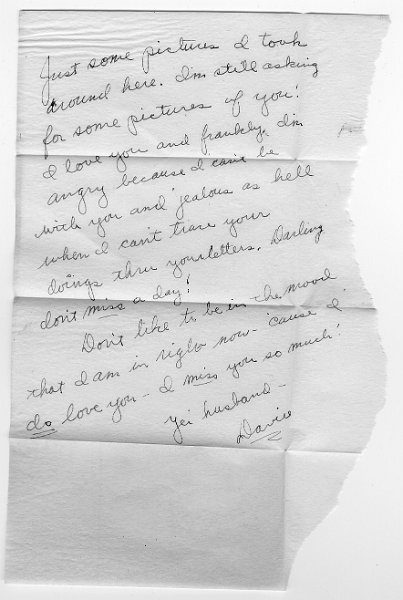 Just some pictures I took
around here. I'm still asking
for some pictures of you!
I love you and frankly, I'm
angry because I can't be
with you and jealous as hell
when I can't trace your
doings thru your letters. Darling
don't miss a day!
Don't like to be in the mood
that I am in right now - 'cause I
do love you - I miss you so much!
Yer husband -
Davie